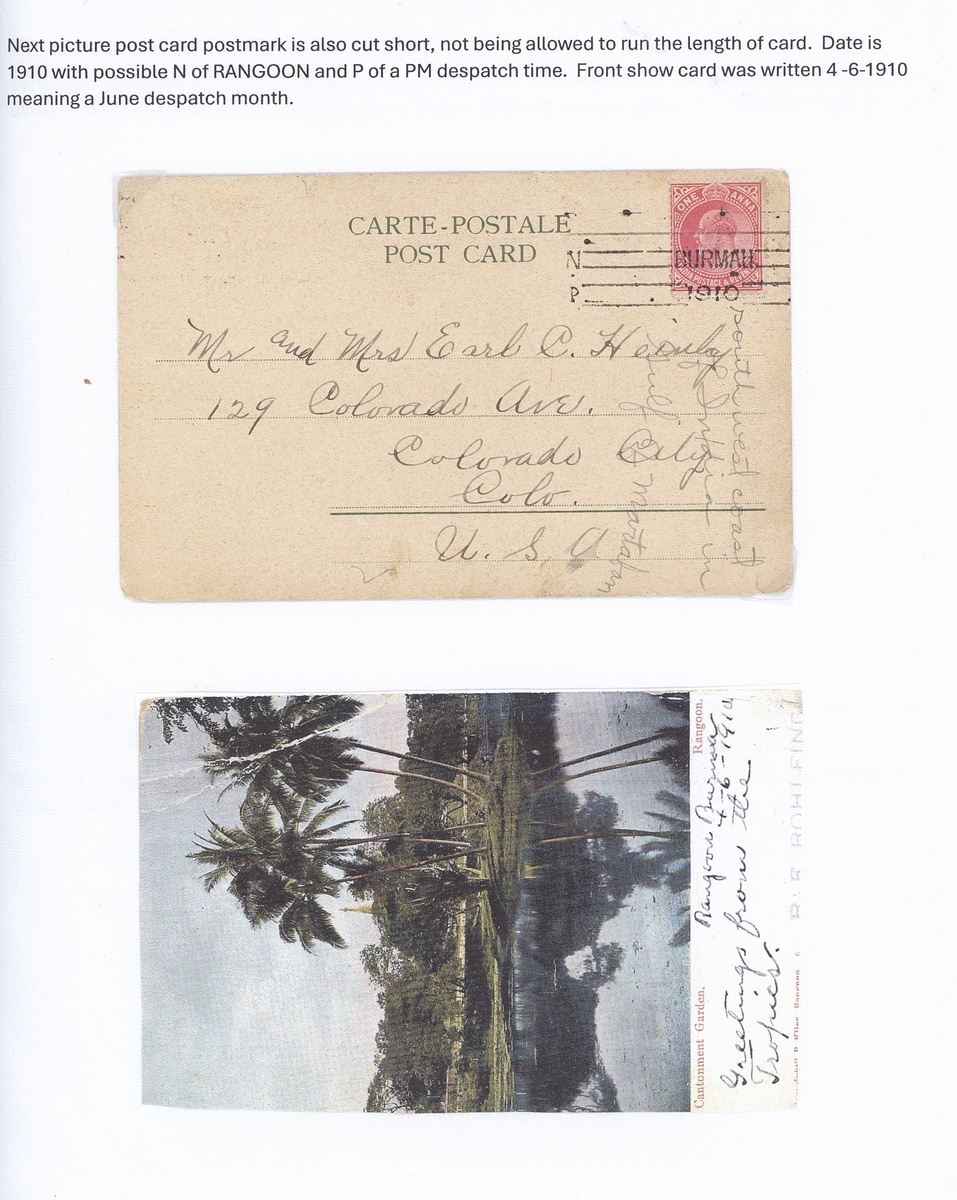 Next picture post card postmark is also cut short, not being allowed to run the length of card.  Date is
1910 with possible N of RANGOON and P of a PM despatch time.  Front show card was written 4 -6-1910
meaning a June despatch month.
CARTE-POSTALE
POST CARD
ONE ANNA
POSTAGE &
N BURMAH.
P 1910
Mr and Mrs Earl C.
129 Colorado Ave.
Colorado City
Colo.
U. S. A
south west coast
of India in
Gulf of Martaban
Cantonment Garden. Rangoon.
Rangoon Burma
4-6-1910
Greetings from the
Tropics.
R. F. ROHLFING
Rangoon